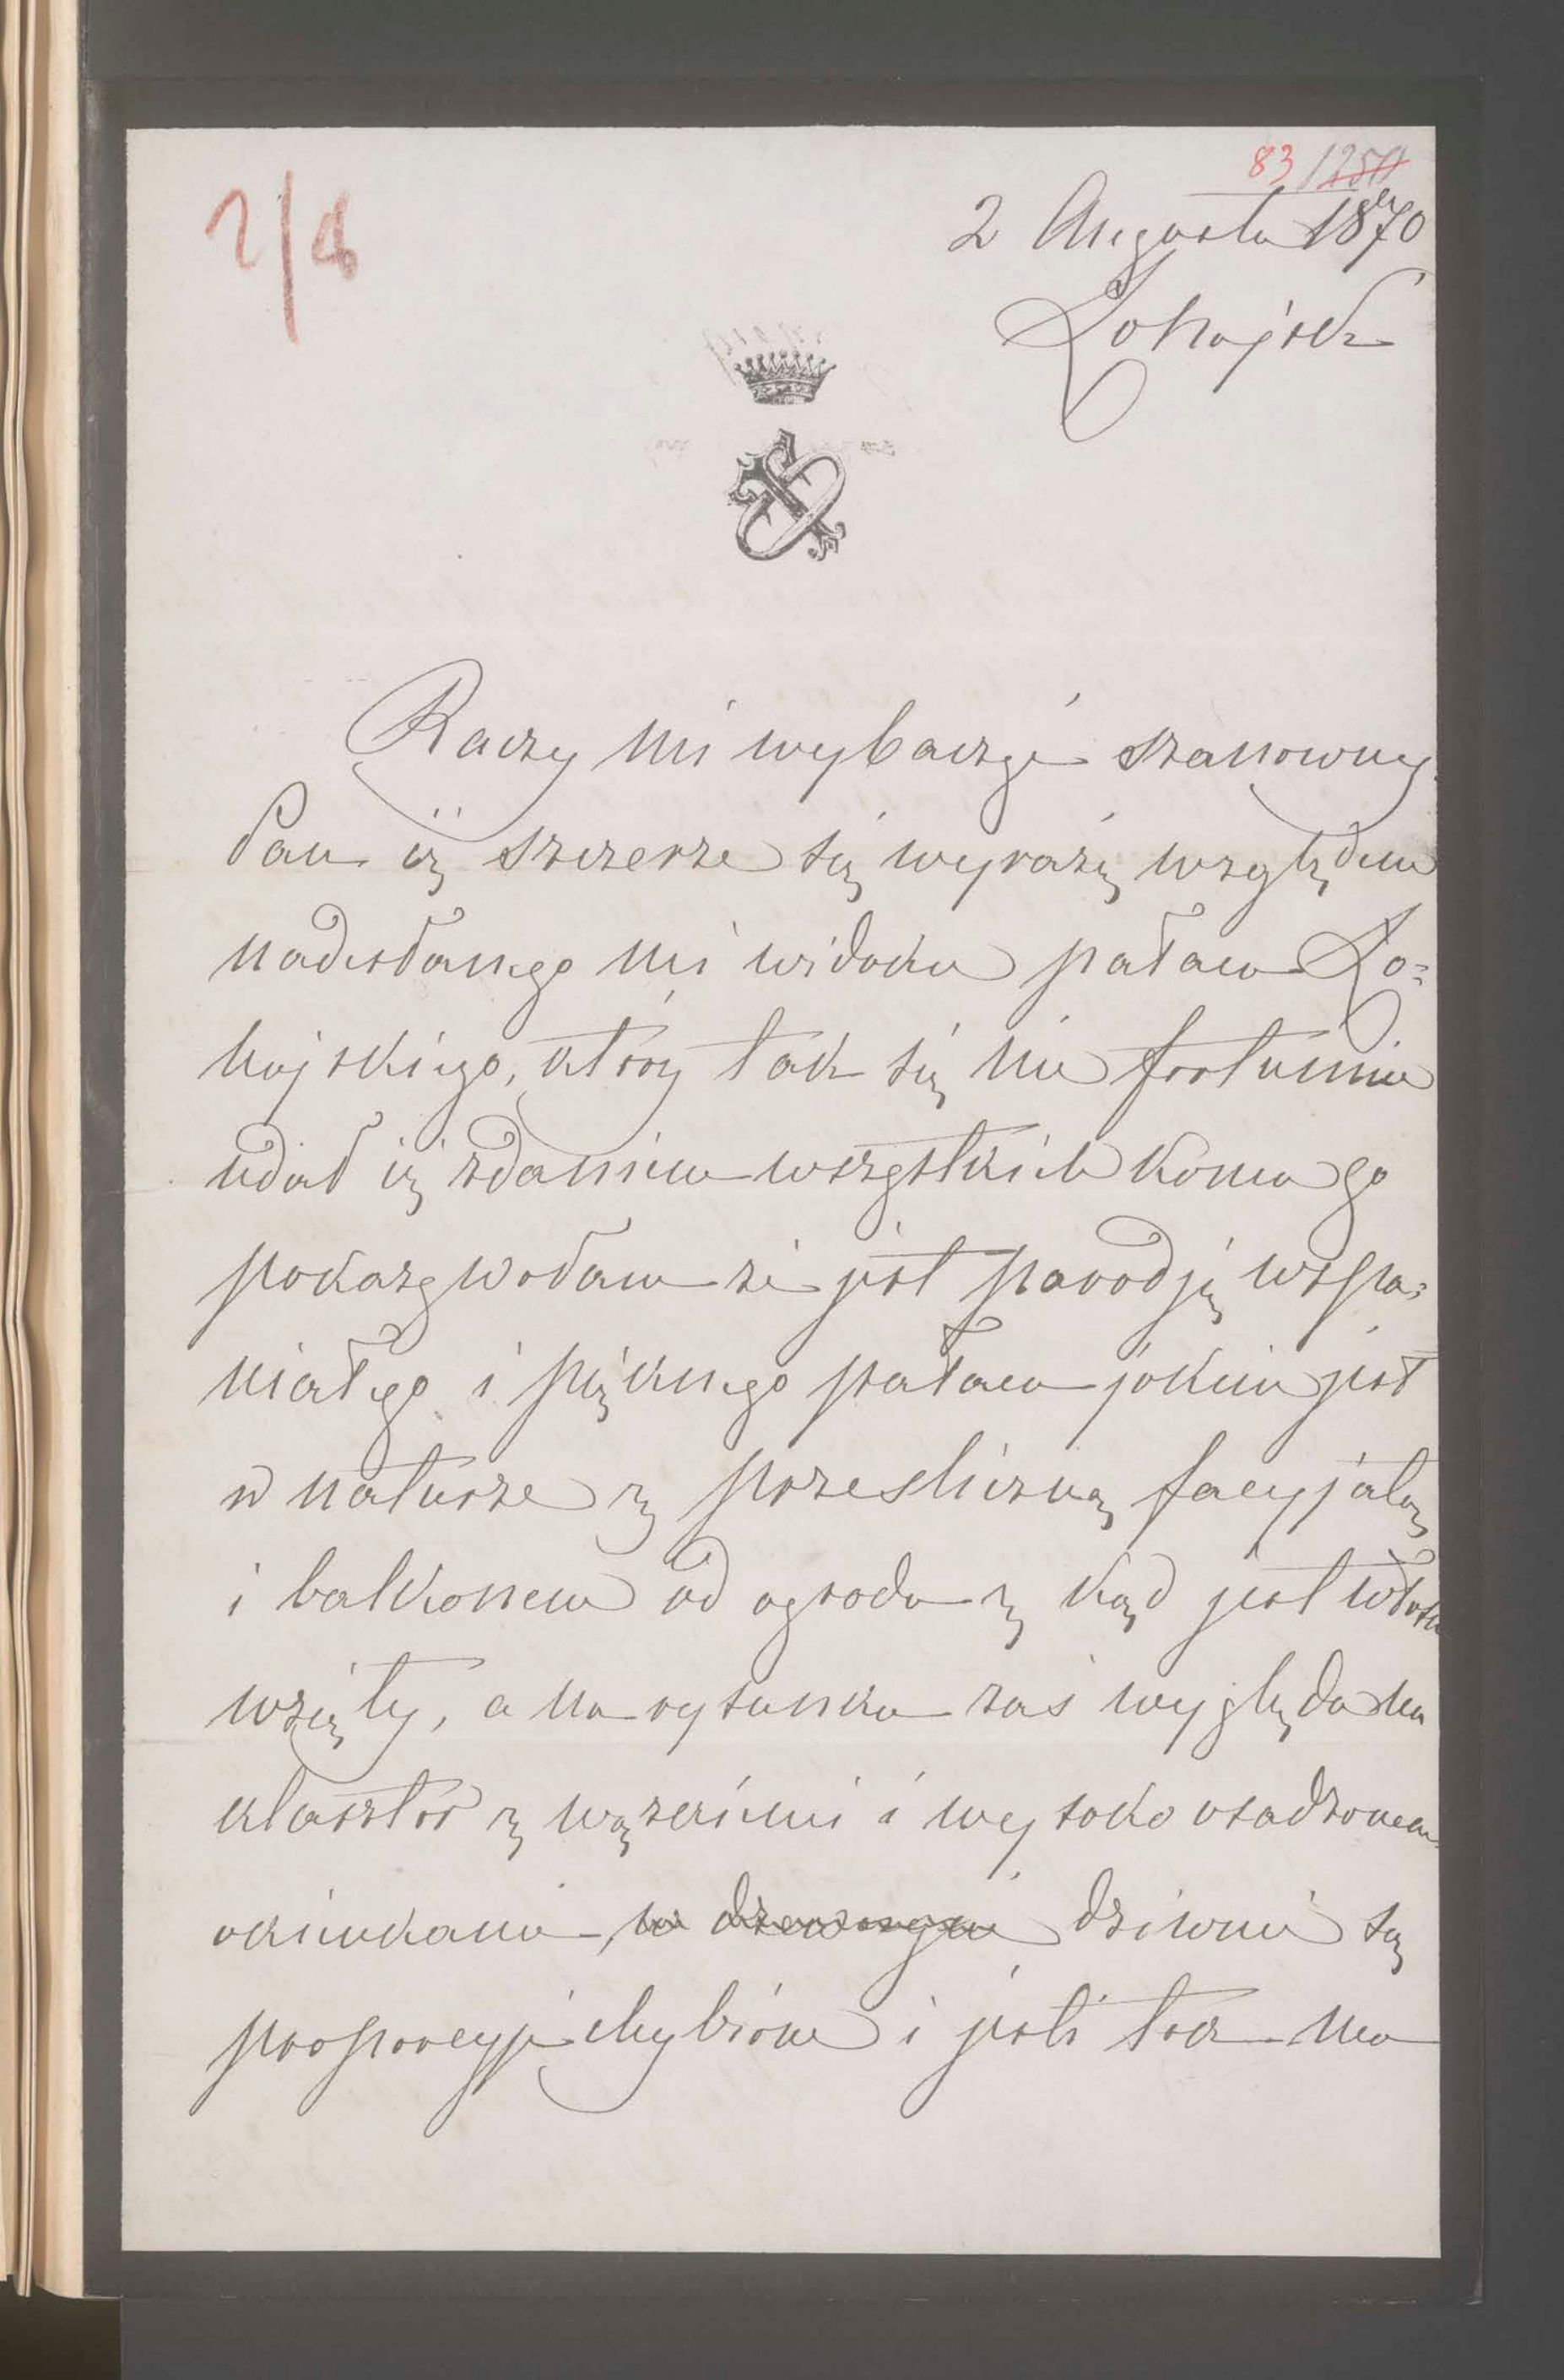 83 1250
2/8
2 Augusta 1870
Łohojsk
Raczy mi wybaczyć szanowny
Pan iż szczerze się wyrażę względem
nadesłanego mi widoku pałacu Ło=
hojskiego, który tak się nie fortunnie
udał iż zdaniem wszystkich komu go
pokazywałam że jest parodją wspa=
niałego i pięknego pałacu jakim jest
w naturze z prześliczną facyjatą
i balkonem od ogrodu z kąd jest widok
wzięty, a na rysunku zaś wygląda na
klasztor z wązkiemi i wysoko osadzonem
okienkami, w drzeworycie dziwnie są
proporcyje chybione i jeśli toż ma